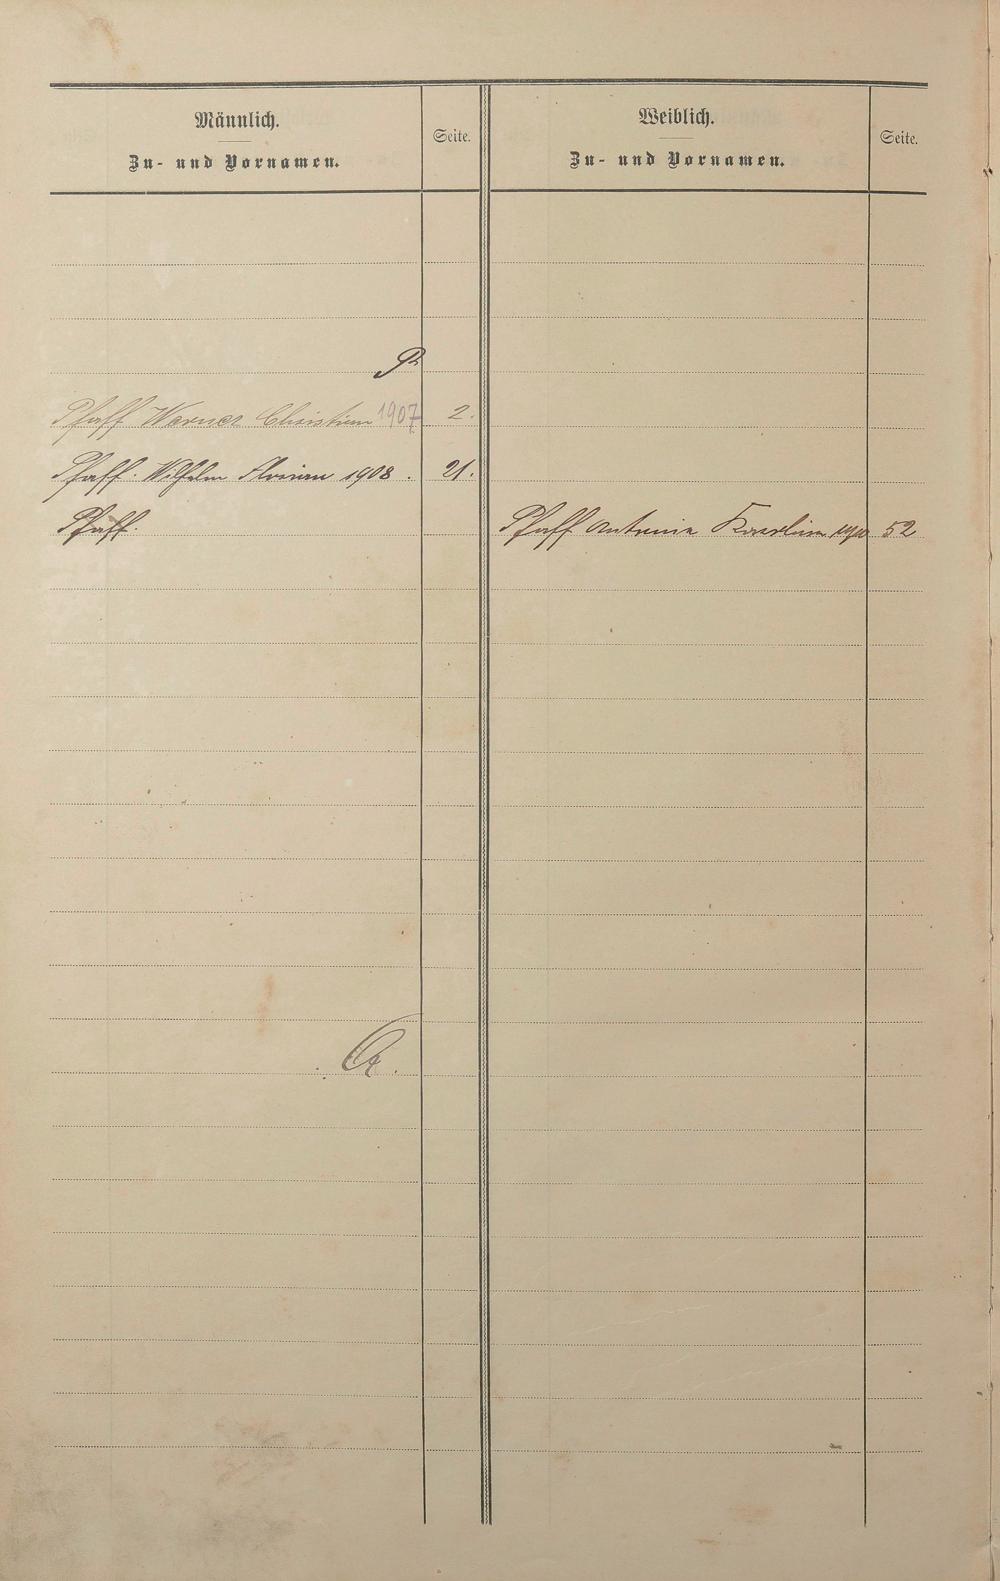 Männlich.
Zu- und Vornamen.
Seite.
Weiblich.
Zu- und Vornamen.
Seite.
P
Pfaff Werner Christian 1907 2.
Pfaff. Wilhelm Florian 1908. 21.
Pfaff.
Pfaff Antonia 1910 52
Q.